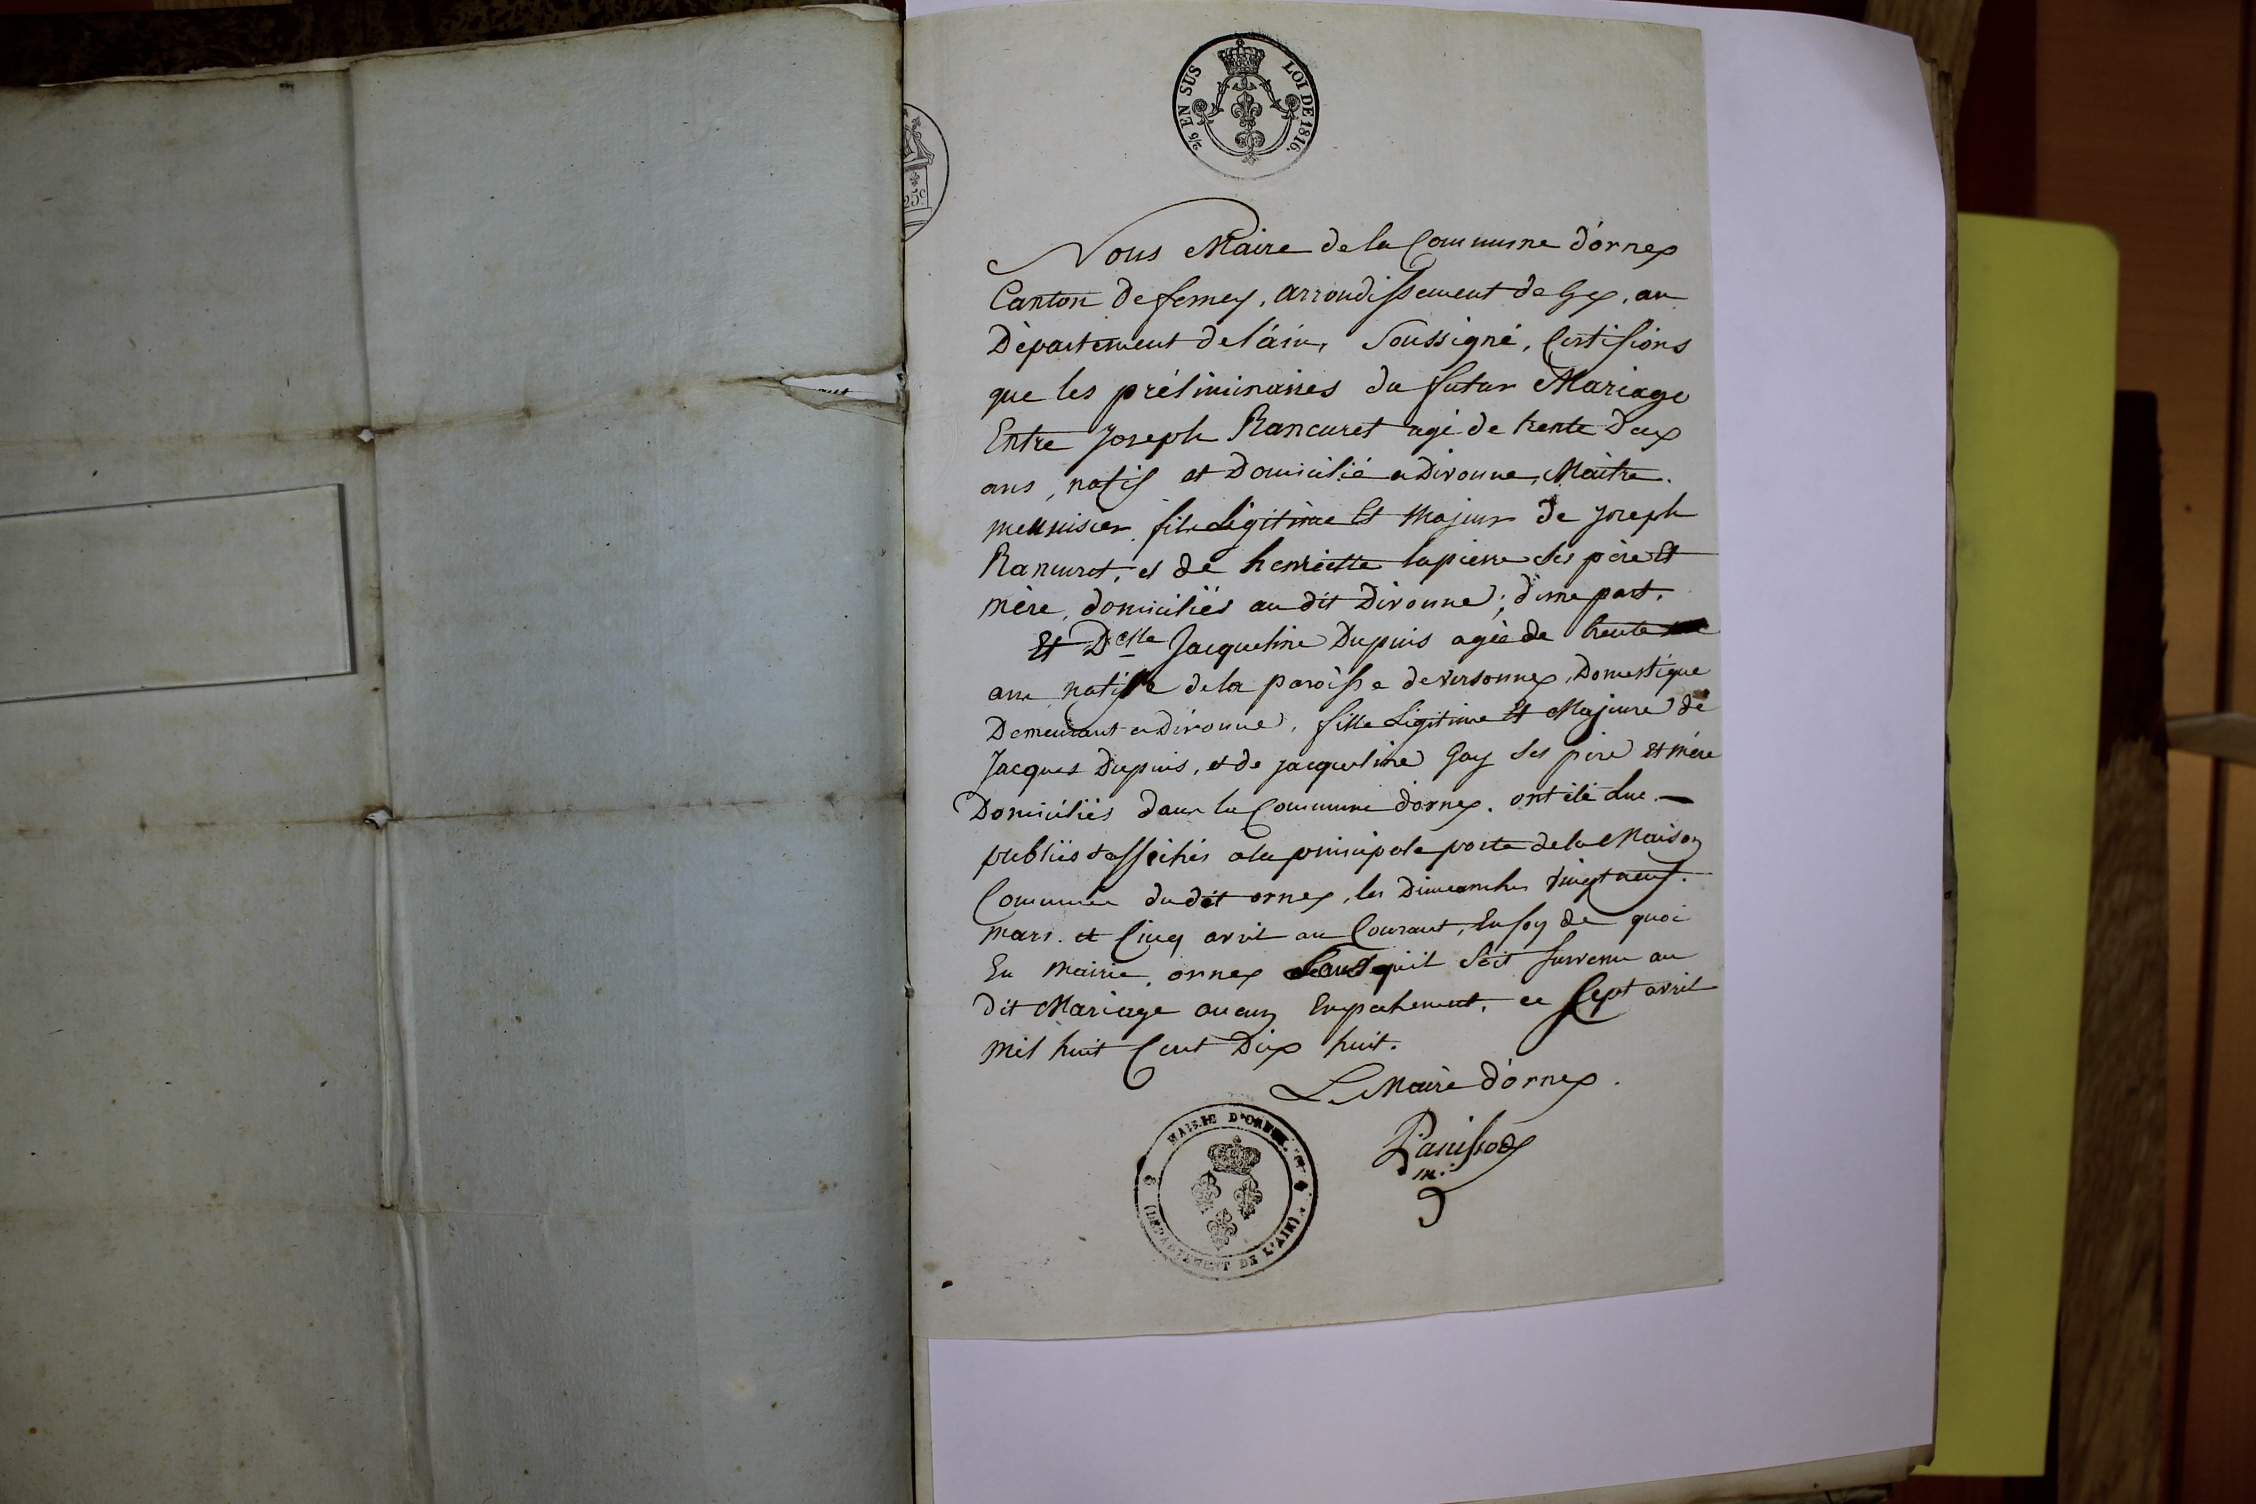 2/5 EN SUS LOI DE 1816.
25c
Nous Maire de la Commune d'ornex
Canton De ferney, arrondissement de Gex, au
Département de l'ain, Soussigné, Certifions
que les préliminaires du futur Mariage
Entre Joseph Rancuret agé de trente Deux
ans, natif et Domicilié a Divonne, Maître.
menuisier, fils Légitime Et Majeur de Joseph
Rancuret, et de henriette lapierre ses père Et
mère, domiciliés au dit Divonne; d'une part.
Et Delle Jacqueline Dupuis agée de trente
ans native de la paroisse de versonnex, Domestique
Demeurant a Divonne, fille Légitime Et Majeure de
Jacques Dupuis, et de jacqueline Gay ses père et mère
Domiciliés dans la Commune d'ornex. ont été lue.
publiés & affichés a la principale porte de la Maison
Commune du dit ornex, les Dimanches vingt neuf.
mars. et Cinq avril au Courant, En foy de quoi
En Mairie, ornex Sans qu'il Soit survenu au
dit Mariage aucun Empechement, ce Sept avril
mil huit Cent Dix huit.
Le Maire d'ornex.
Panissod
m.
MAIRIE D'ORNEX.
(DEPARTEMENT DE L'AIN)